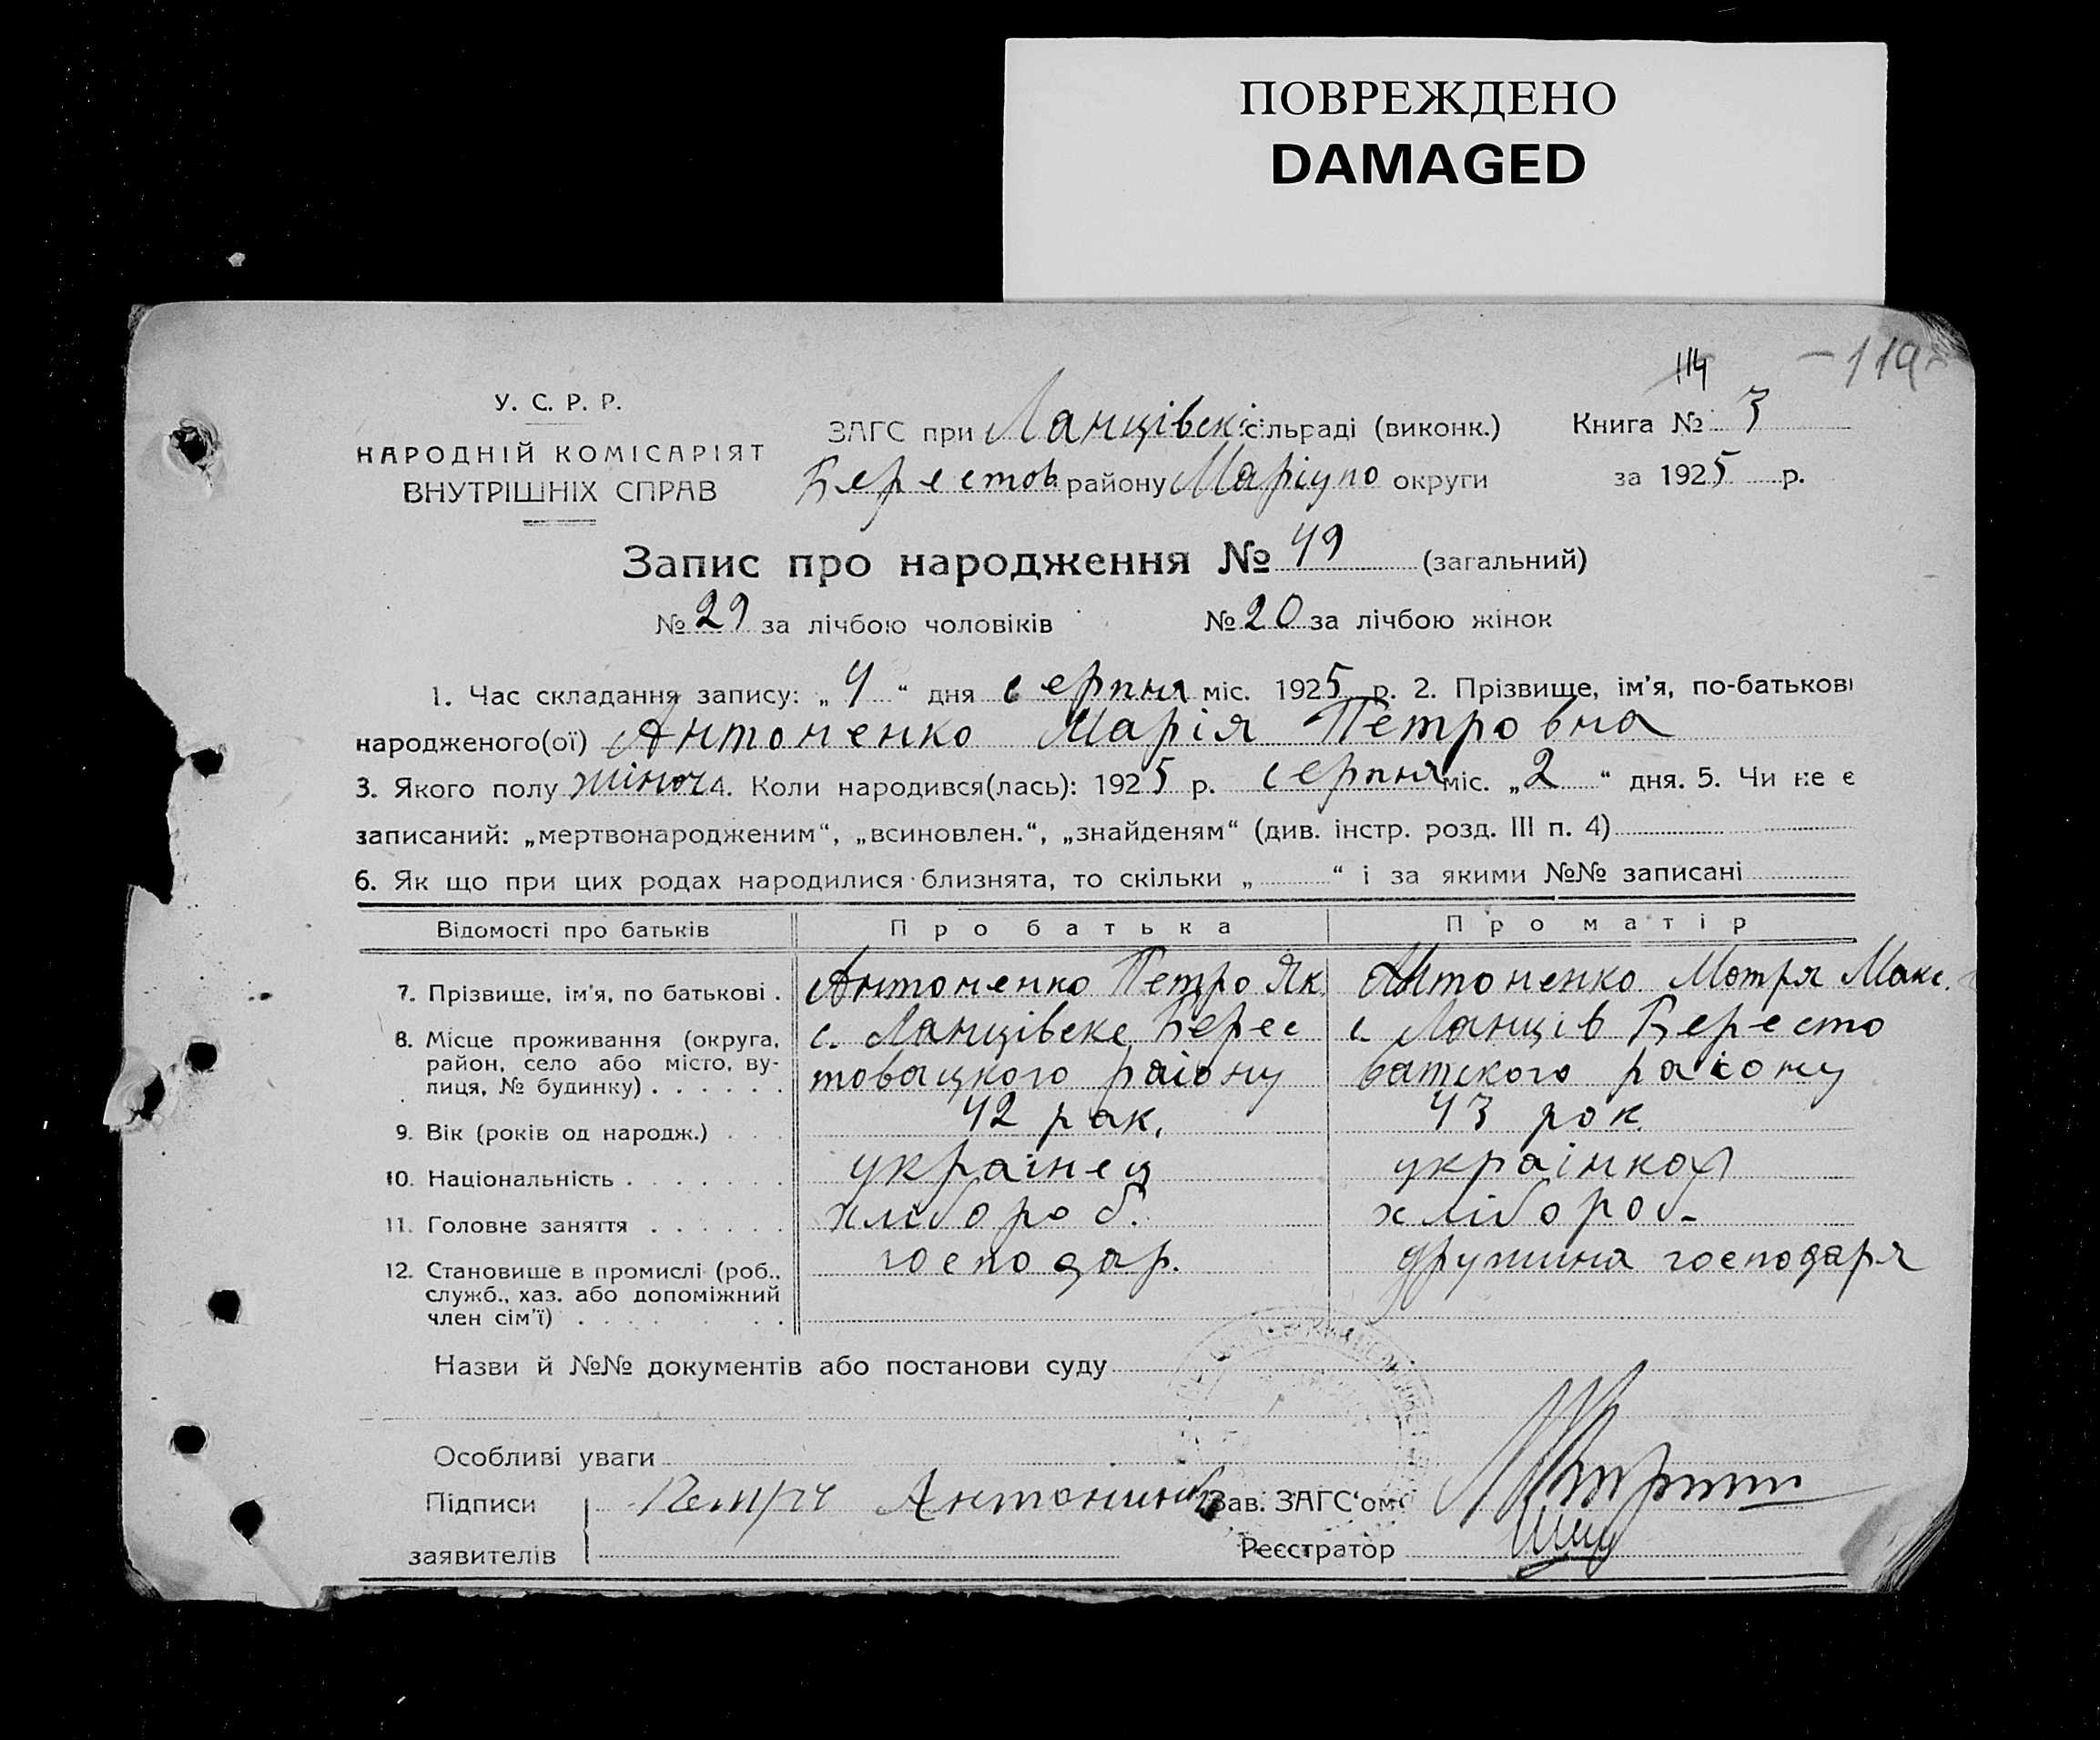 ПОВРЕЖДЕНО
DAMAGED
114 – 119
У. С. Р. Р.
НАРОДНІЙ КОМІСАРІЯТ
ВНУТРІШНІХ СПРАВ
ЗАГС при Ланцівскі сільраді (виконк.)
Берестов. району Маріупо округи
Книга № 3
за 1925 р.
Запис про народження № 49 (загальний)
№ 29 за лічбою чоловіків № 20 за лічбою жінок
1. Час складання запису: „4“ дня серпня міс. 1925 р. 2. Прізвище, ім'я, по-батькові
народженого(ої) Антоненко Марія Петровна
3. Якого полу жіноч 4. Коли народився(лась): 1925 р. серпня міс. „2“ дня. 5. Чи не є
записаний: „мертвонародженим“, „всиновлен.“, „знайденям“ (див. інстр. розд. III п. 4)
6. Як що при цих родах народилися близнята, то скільки „ “ і за якими №№ записані
Відомості про батьків Про батька Про матір
7. Прізвище, ім'я, по батькові . Антоненко Петро Як. Антоненко Мотря Макс.
8. Місце проживання (округа, район, село або місто, вулиця, № будинку) . . . . . . с. Ланцівске Берес с Ланців Бересто
товацкого раіону батского раіону
9. Вік (років од народж.) . . . 42 рак. 43 рок.
10. Національність . . . . . . . украінец украінка
11. Головне заняття . . . . . . хлібороб. хлібороб-
12. Становище в промислі (роб., служб., хаз. або допоміжний член сім'ї) . . . . . . . господар. дружина господаря
Назви й №№ документів або постанови суду
Особливі уваги
Підписи Петро
заявителів
Зав. ЗАГС'ом
Реєстратор